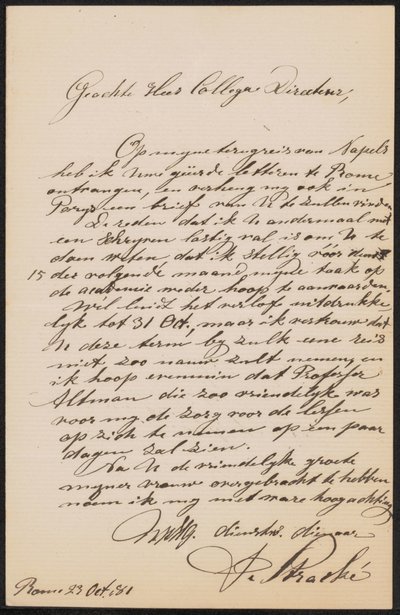 Geachte Heer Collega Directeur,
Op myne terugreis van Napels
heb ik Uwe geëerde letteren te Rome
ontvangen, en verheug my ook in
Parys een brief van U te zullen vinden
De reden dat ik U andermaal met
een schryven lastig val is om U te
doen weten dat ik stellig vóór den
15 der volgende maand myne taak op
de academie weder hoop te aanvaarden.
Wél luidt het verlof uitdrukke
lyk tot 31 Oct, maar ik vertrouw dat
U deze term by zulk eene reis
niet zoo nauw zult nemen en
ik hoop evenmin dat Professor
Altman die zoo vriendelyk was
voor my de zorg voor de lessen
op zich te nemen op een paar
dagen zal zien.
Na U de vriendelyke groete
myner vrouw overgebracht te hebben
noem ik my met ware hoogachting
UEdg. dienstw. dienaar
Stracké
Rome 23 Oct. 81